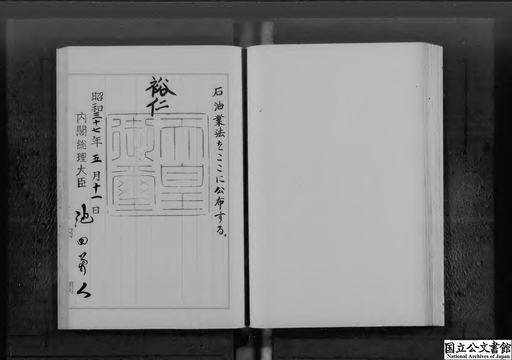 石油業法をここに公布する。
裕仁
天皇御璽
昭和三十七年五月十一日
内閣総理大臣
池田勇人
国立公文書館
National Archives of Japan